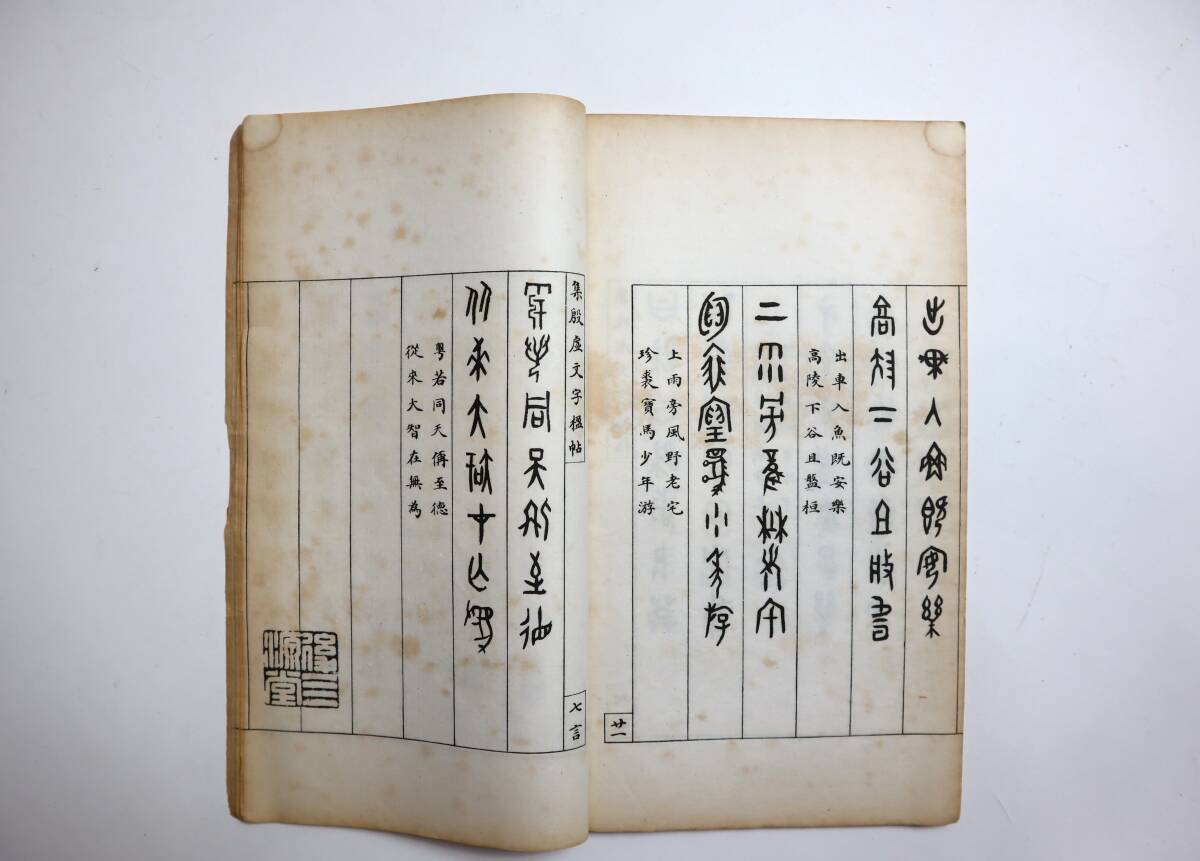 出車入魚既安樂
高陵下谷且盤桓
出車入魚既安樂
高陵下谷且盤桓
上雨旁風野老宅
珍裘寶馬少年游
上雨旁風野老宅
珍裘寶馬少年游
廿一
集殷虛文字楹帖
七言
粵若同天偁至德
從來大智在無為
粵若同天偁至德
從來大智在無為